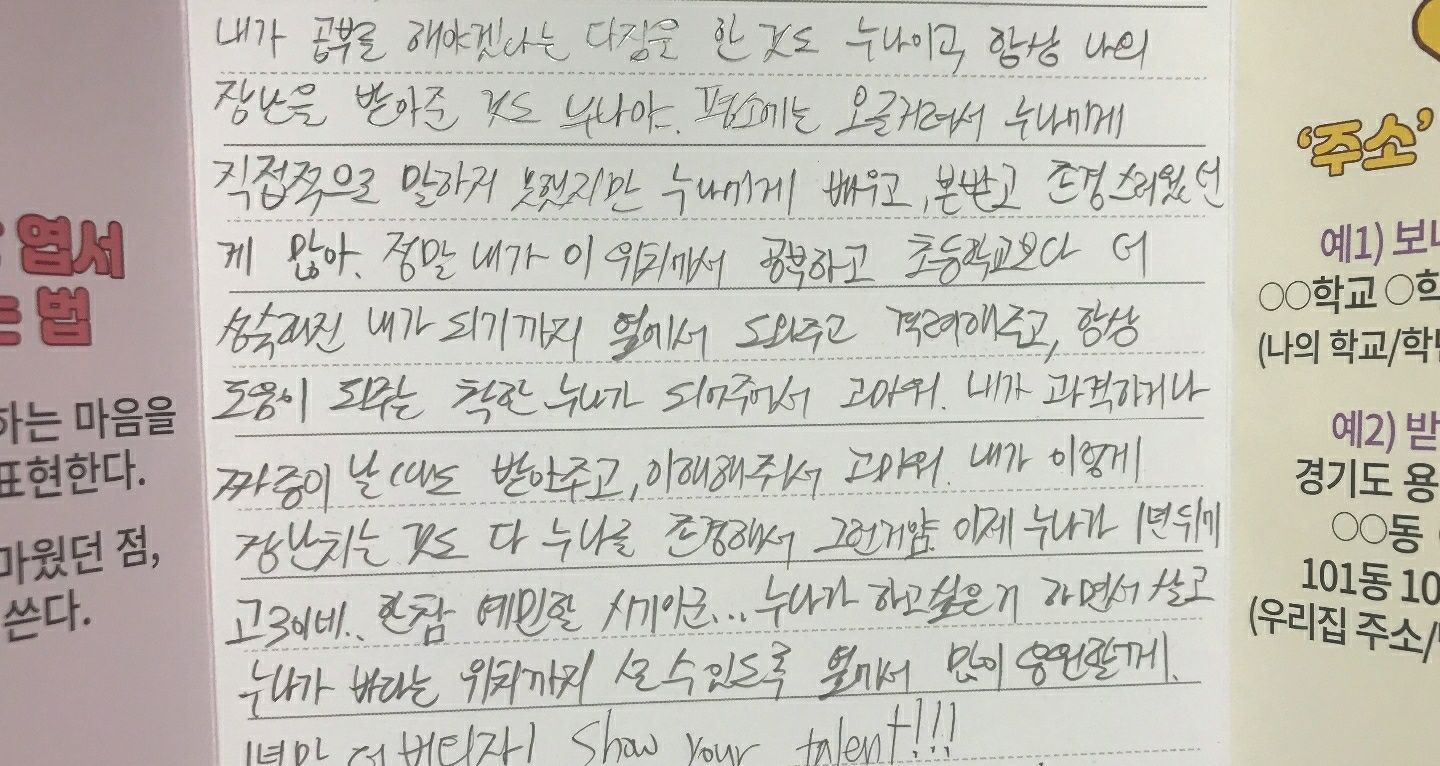 내가 공부를 해야겠다는 다짐을 한 것도 누나이고, 항상 나의
장난을 받아준 것도 누나야. 평소에는 오글거려서 누나에게
직접적으로 말하지 못했지만 누나에게 배우고, 본받고 존경스러웠던
게 많아. 정말 내가 이 위치에서 공부하고 초등학교보다 더
성숙해진 내가 되기까지 옆에서 도와주고 격려해주고, 항상
도움이 되주는 착한 누나가 되어주어서 고마워. 내가 과격하거나
짜증이 날 때도 받아주고, 이해해주서 고마워. 내가 이렇게
장난치는 것도 다 누나를 존경해서 그런거얌. 이제 누나가 1년뒤에
고3이네.. 한참 예민할 시기이군... 누나가 하고싶은거 하면서 살고
누나가 바라는 위치까지 설 수 있도록 옆에서 많이 응원할게!
1년만 더 버티자! Show your talent!!!
엽서
는 법
하는 마음을
표현한다.
마웠던 점,
쓴다.
'주소'
예1) 보내
○○학교 ○학
(나의 학교/학년
예2) 받
경기도 용
○○동
101동 10
(우리집 주소/